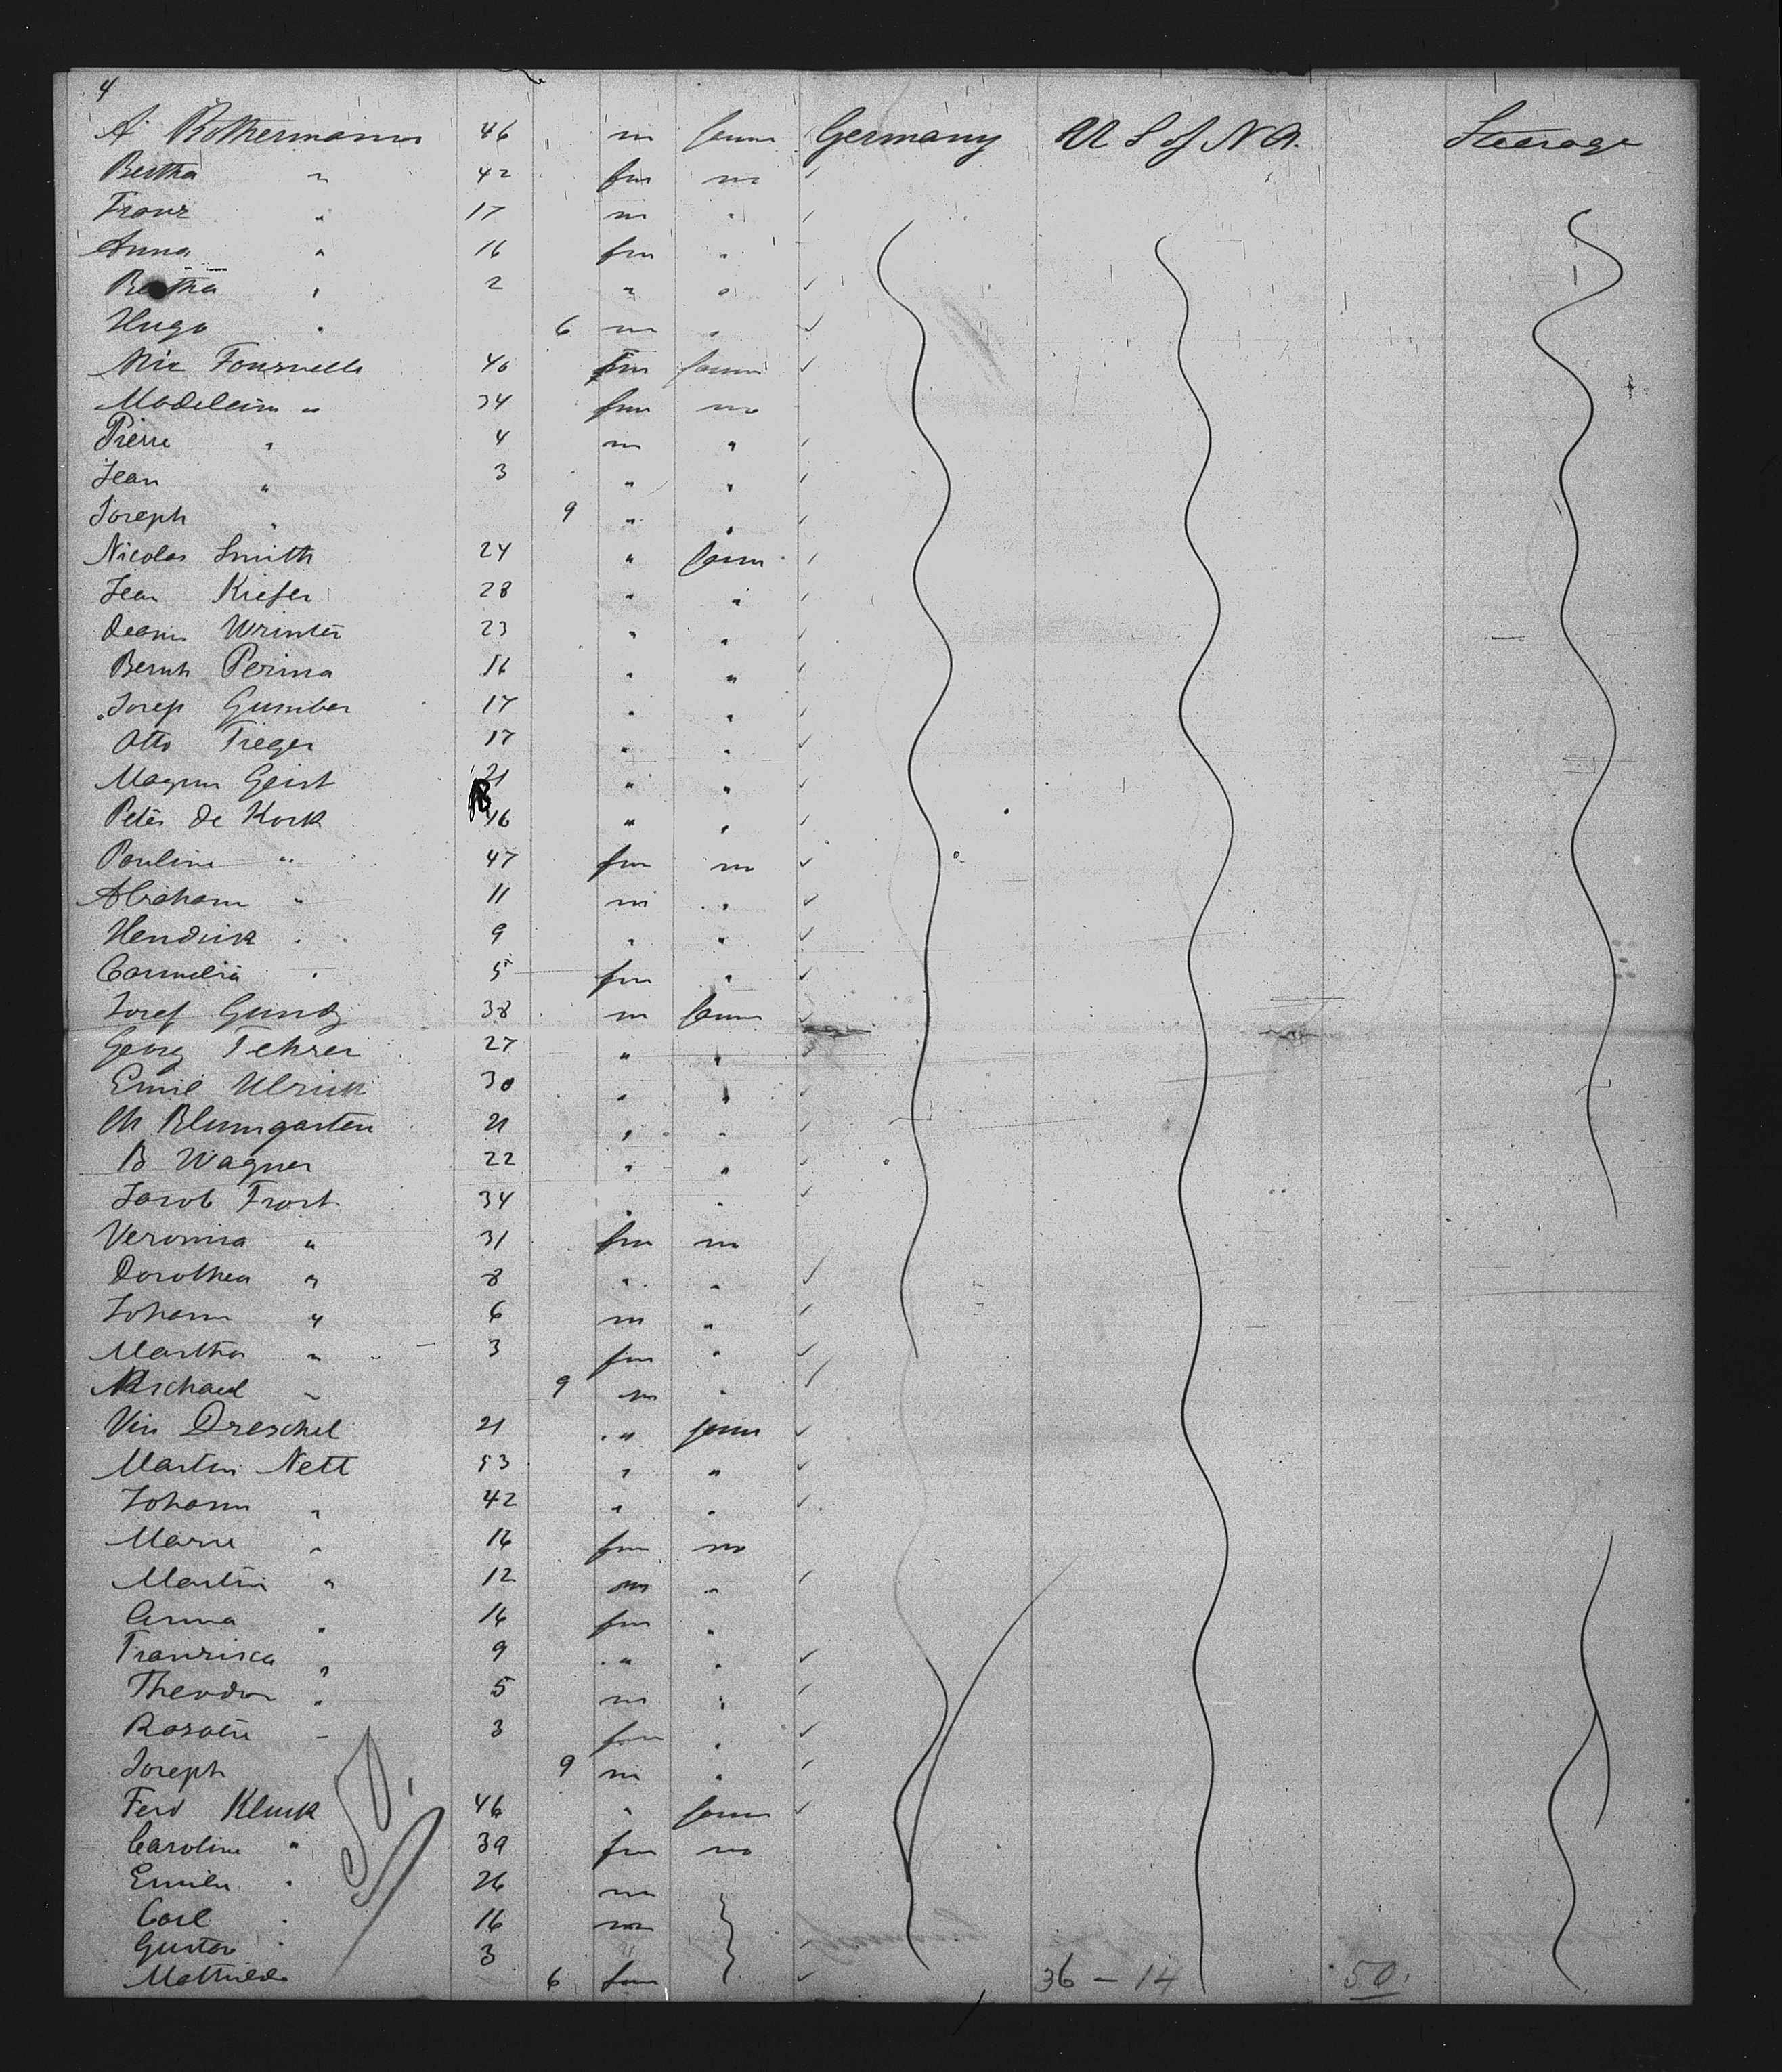 4
A Rothermann 46 m farm Germany U S of N A. Steerage
Bertha " 42 fm no
Franz " 17 m "
Anna " 16 fm "
Bertha " 2 " "
Hugo " 6 m "
Nic Fournelle 40 fm farm
Madelein " 34 fm no
Pierre " 4 m "
Jean " 3 " "
Joseph " 9 " "
Nicolas Smith 24 " farm
Jean Kiefer 28 " "
23 " "
Bernh Perina 16 " "
Josep Gumber 17 " "
Otto Treger 17 " "
Magnus Geist 21 " "
Peter de Kock 46 " "
Pauline " 47 fm no
Abraham " 11 m "
Hendrick " 9 " "
Cornelia " 5 fm "
Josef Gundz 38 m farm
Georg Tehrer 27 " "
Emil Ulrick 30 " "
Ch Blumgarten 21 " "
B Wagner 22 " "
Jacob Frost 34 " "
Veronica " 31 fm no
Dorothea " 8 " "
Johann " 6 m "
Martha " 3 fm "
Michael " 9 m "
Vin Dreschel 21 " farm
Martin Nett 53 " "
Johann " 42 " "
Marie " 16 fm no
Martin " 12 m "
Anna " 14 fm "
Franzisca " 9 " "
Theodor " 5 m "
Rosalie " 3 fm "
Joseph 9 m "
Ferd Kluck 46 " farm
Caroline " 39 fm no
Emilie " 26 m
Carl " 16 m
Gustav " 3
Mathilde 6 fm 36 – 14 50.
50.